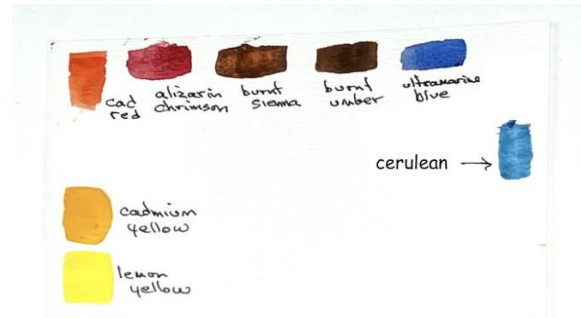 cad
red
alizarin
chrimson
burnt
sienna
burnt
umber
ultramarine
blue
cerulean →
cadmium
yellow
lemon
yellow